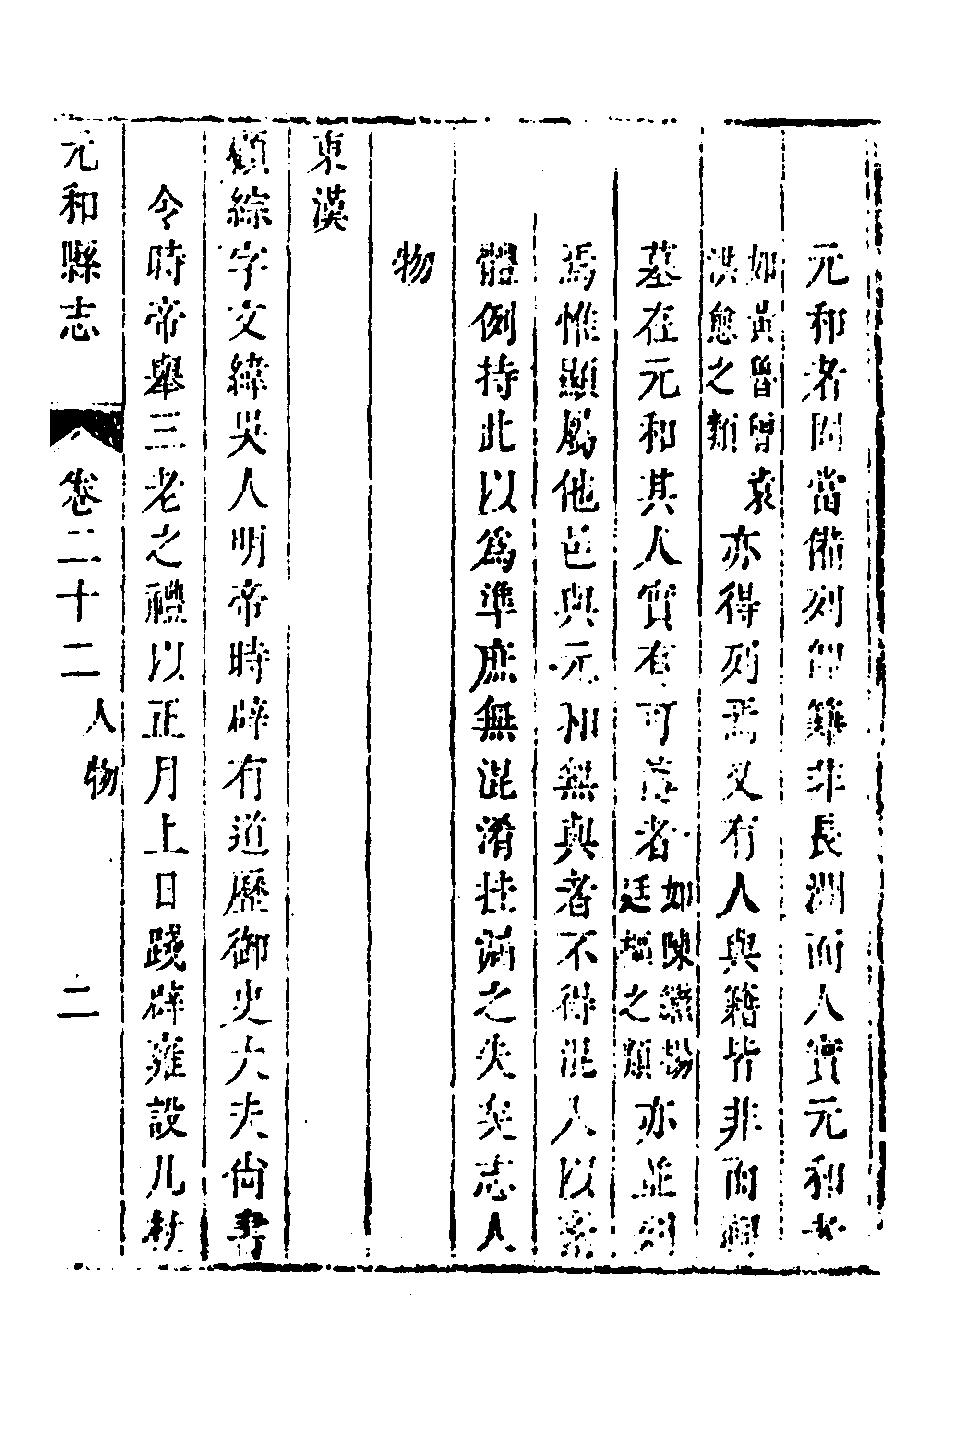 元和者固當備列卽籍非長洲而人實元和者
如黃魯曾袁
洪愈之類
亦得列焉又有人與籍皆非而
墓在元和其人實有可者
如陳
廷之類
亦並列
焉惟顯屬他邑與元和無與者不得混入以紊
體例持此以爲準庶無混淆挂漏之失矣志人
物
東漢
顧綜字文緯吳人明帝時辟有道歷御史大夫尙書
令時帝舉三老之禮以正月上日踐辟雍設几杖
元和縣志
卷二十二
人物
二